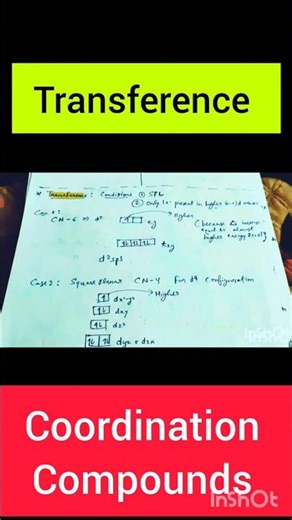 Transference
* Transference : Conditions ① SFL
② Only 1e⁻ present in higher
Case 1 :
CN-6 d⁷
eg
Higher
(because Δ
t₂g
higher energy level)
d²sp³
Case 2 : Square planar CN-4 For d⁹ configuration
dx²-y²
Higher
dxy
dz²
dyz = dzx
InShOt
Coordination
Compounds
InShOt